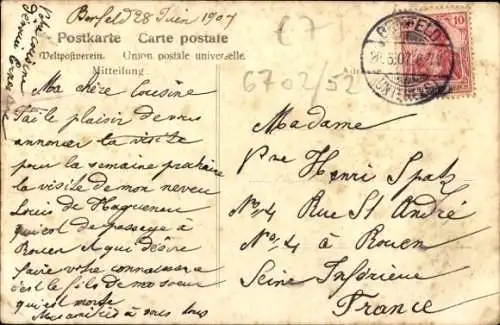 Berfeld 28 Juin 1907
Postkarte Carte postale
Weltpostverein. Union postale universelle.
Mitteilung
Ma chère Cousine
J'ai le plaisir de vous
annoncer la visite
pour la semaine prochaine
la visite de mon neveu
Louis de Haguenau
qui est de passage à
Rouen & qui désire
faire votre connaissance
c'est le fils de ma soeur
qui est morte
Mes amitiés à vous tous
Votre cousine
67
6702/52
10
Madame
Vve Henri Spatz
No 4 Rue St André
No 4 à Rouen
Seine Inférieure
France